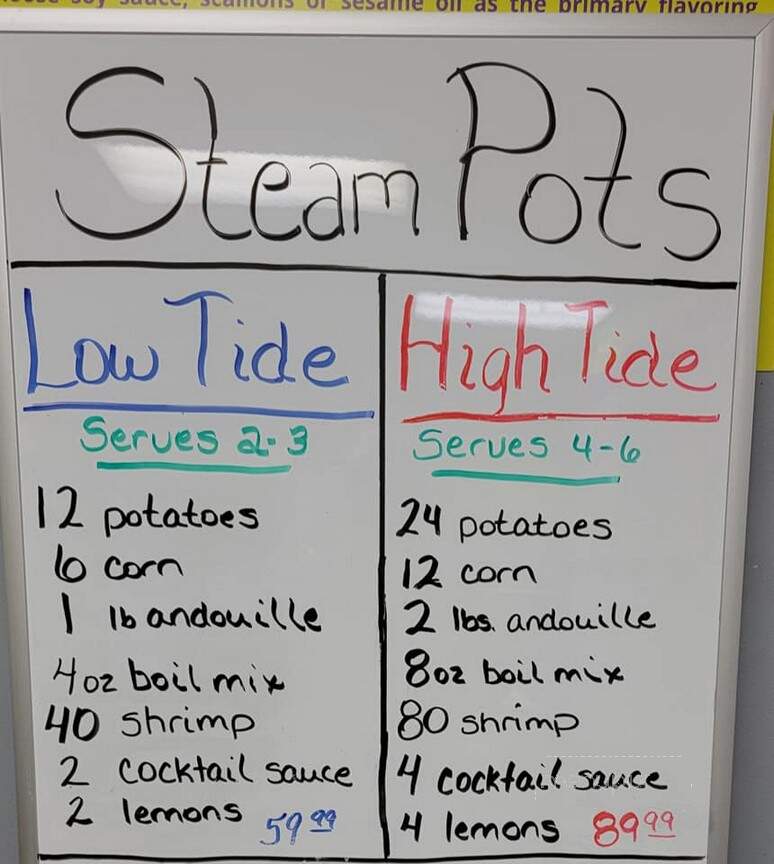 soy sauce, scallions or sesame oil as the primary flavoring
Steam Pots
Low Tide
Serves 2-3
12 potatoes
6 corn
1 lb andouille
4oz boil mix
40 shrimp
2 cocktail sauce
2 lemons 59.99
High Tide
Serves 4-6
24 potatoes
12 corn
2 lbs. andouille
8oz boil mix
80 shrimp
4 cocktail sauce
4 lemons 89.99